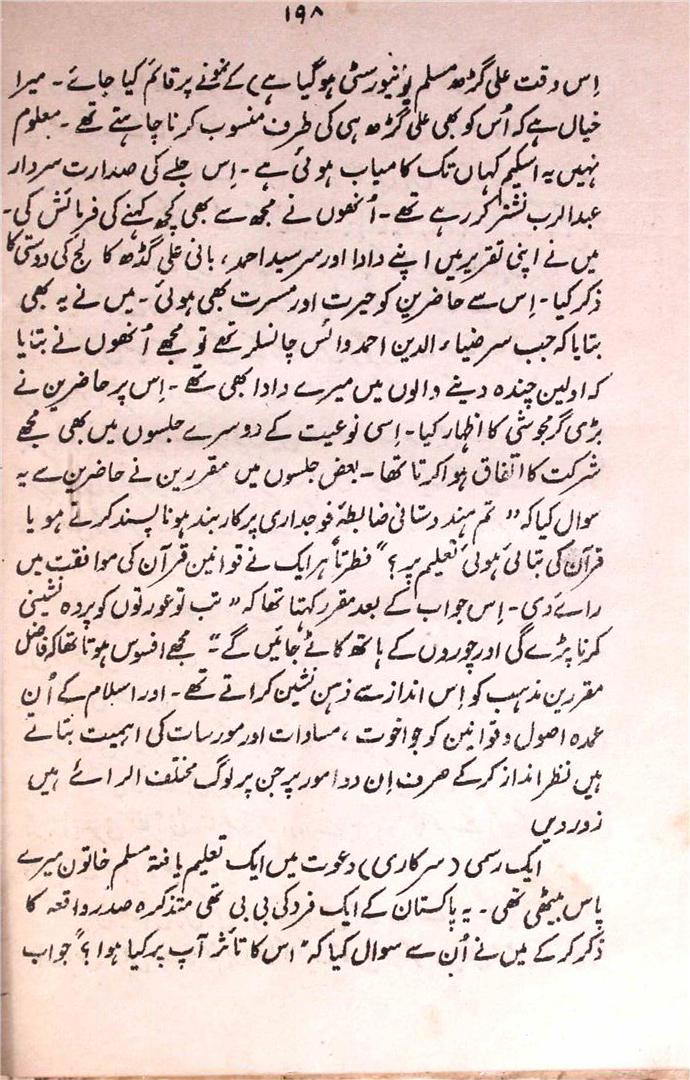 ۱۹۸
اِس وقت علی گڑھ مسلم یونیورسٹی ہوگیا ہے) کے نمونے پر قائم کیا جائے۔ میرا
خیال ہے کہ اُس کو بھی علی گڑھ ہی کی طرف منسوب کرنا چاہتے تھے۔ معلوم
نہیں یہ اسکیم کہاں تک کامیاب ہوئی ہے۔ اِس جلسے کی صدارت سردار
عبدالرب نشتر کر رہے تھے۔ اُنھوں نے مجھ سے بھی کچھ کہنے کی فرمائش کی۔
میں نے اپنی تقریر میں اپنے دادا اور سر سید احمد، بانی علی گڈھ کالج کی دوستی کا
ذکر کیا۔ اِس سے حاضرین کو حیرت اور مسرت بھی ہوئی۔ میں نے یہ بھی
بتایا کہ جب سر ضیاء الدین احمد وائس چانسلر تھے تو مجھے اُنھوں نے بتایا
کہ اولین چندہ دینے والوں میں میرے دادا بھی تھے۔ اِس پر حاضرین نے
بڑی گرمجوشی کا اظہار کیا۔ اِسی نوعیت کے دوسرے جلسوں میں بھی مجھے
شرکت کا اتفاق ہوا کرتا تھا۔ بعض جلسوں میں مقررین نے حاضرین سے یہ
سوال کیا کہ ”تم ہندوستانی ضابطۂ فوجداری پر کاربند ہونا پسند کرتے ہو یا
قرآن کی بتائی ہوئی تعلیم پر؟“ فطرتاً ہر ایک نے قوانین قرآن کی موافقت میں
رائے دی۔ اِس جواب کے بعد مقرر کہتا تھا کہ ”تب تو عورتوں کو پردہ نشینی
کرنا پڑے گی اور چوروں کے ہاتھ کاٹے جائیں گے“ مجھے افسوس ہوتا تھا کہ فاضل
مقررین مذہب کو اِس انداز سے ذہن نشین کراتے تھے۔ اور اسلام کے اُن
عمدہ اصول و قوانین کو جو اخوت، مساوات اور مورسات کی اہمیت بتاتے
ہیں نظر انداز کرکے صرف اِن دو امور پر جن پر لوگ مختلف الرائے ہیں
زور دیں
ایک رسمی (سرکاری) دعوت میں ایک تعلیم یافتہ مسلم خاتون میرے
پاس بیٹھی تھی۔ یہ پاکستان کے ایک فرد کی بی بی تھی متذکرہ صدر واقعہ کا
ذکر کرکے میں نے اُن سے سوال کیا کہ ”اس کا تأثر آپ پر کیا ہوا؟“ جواب